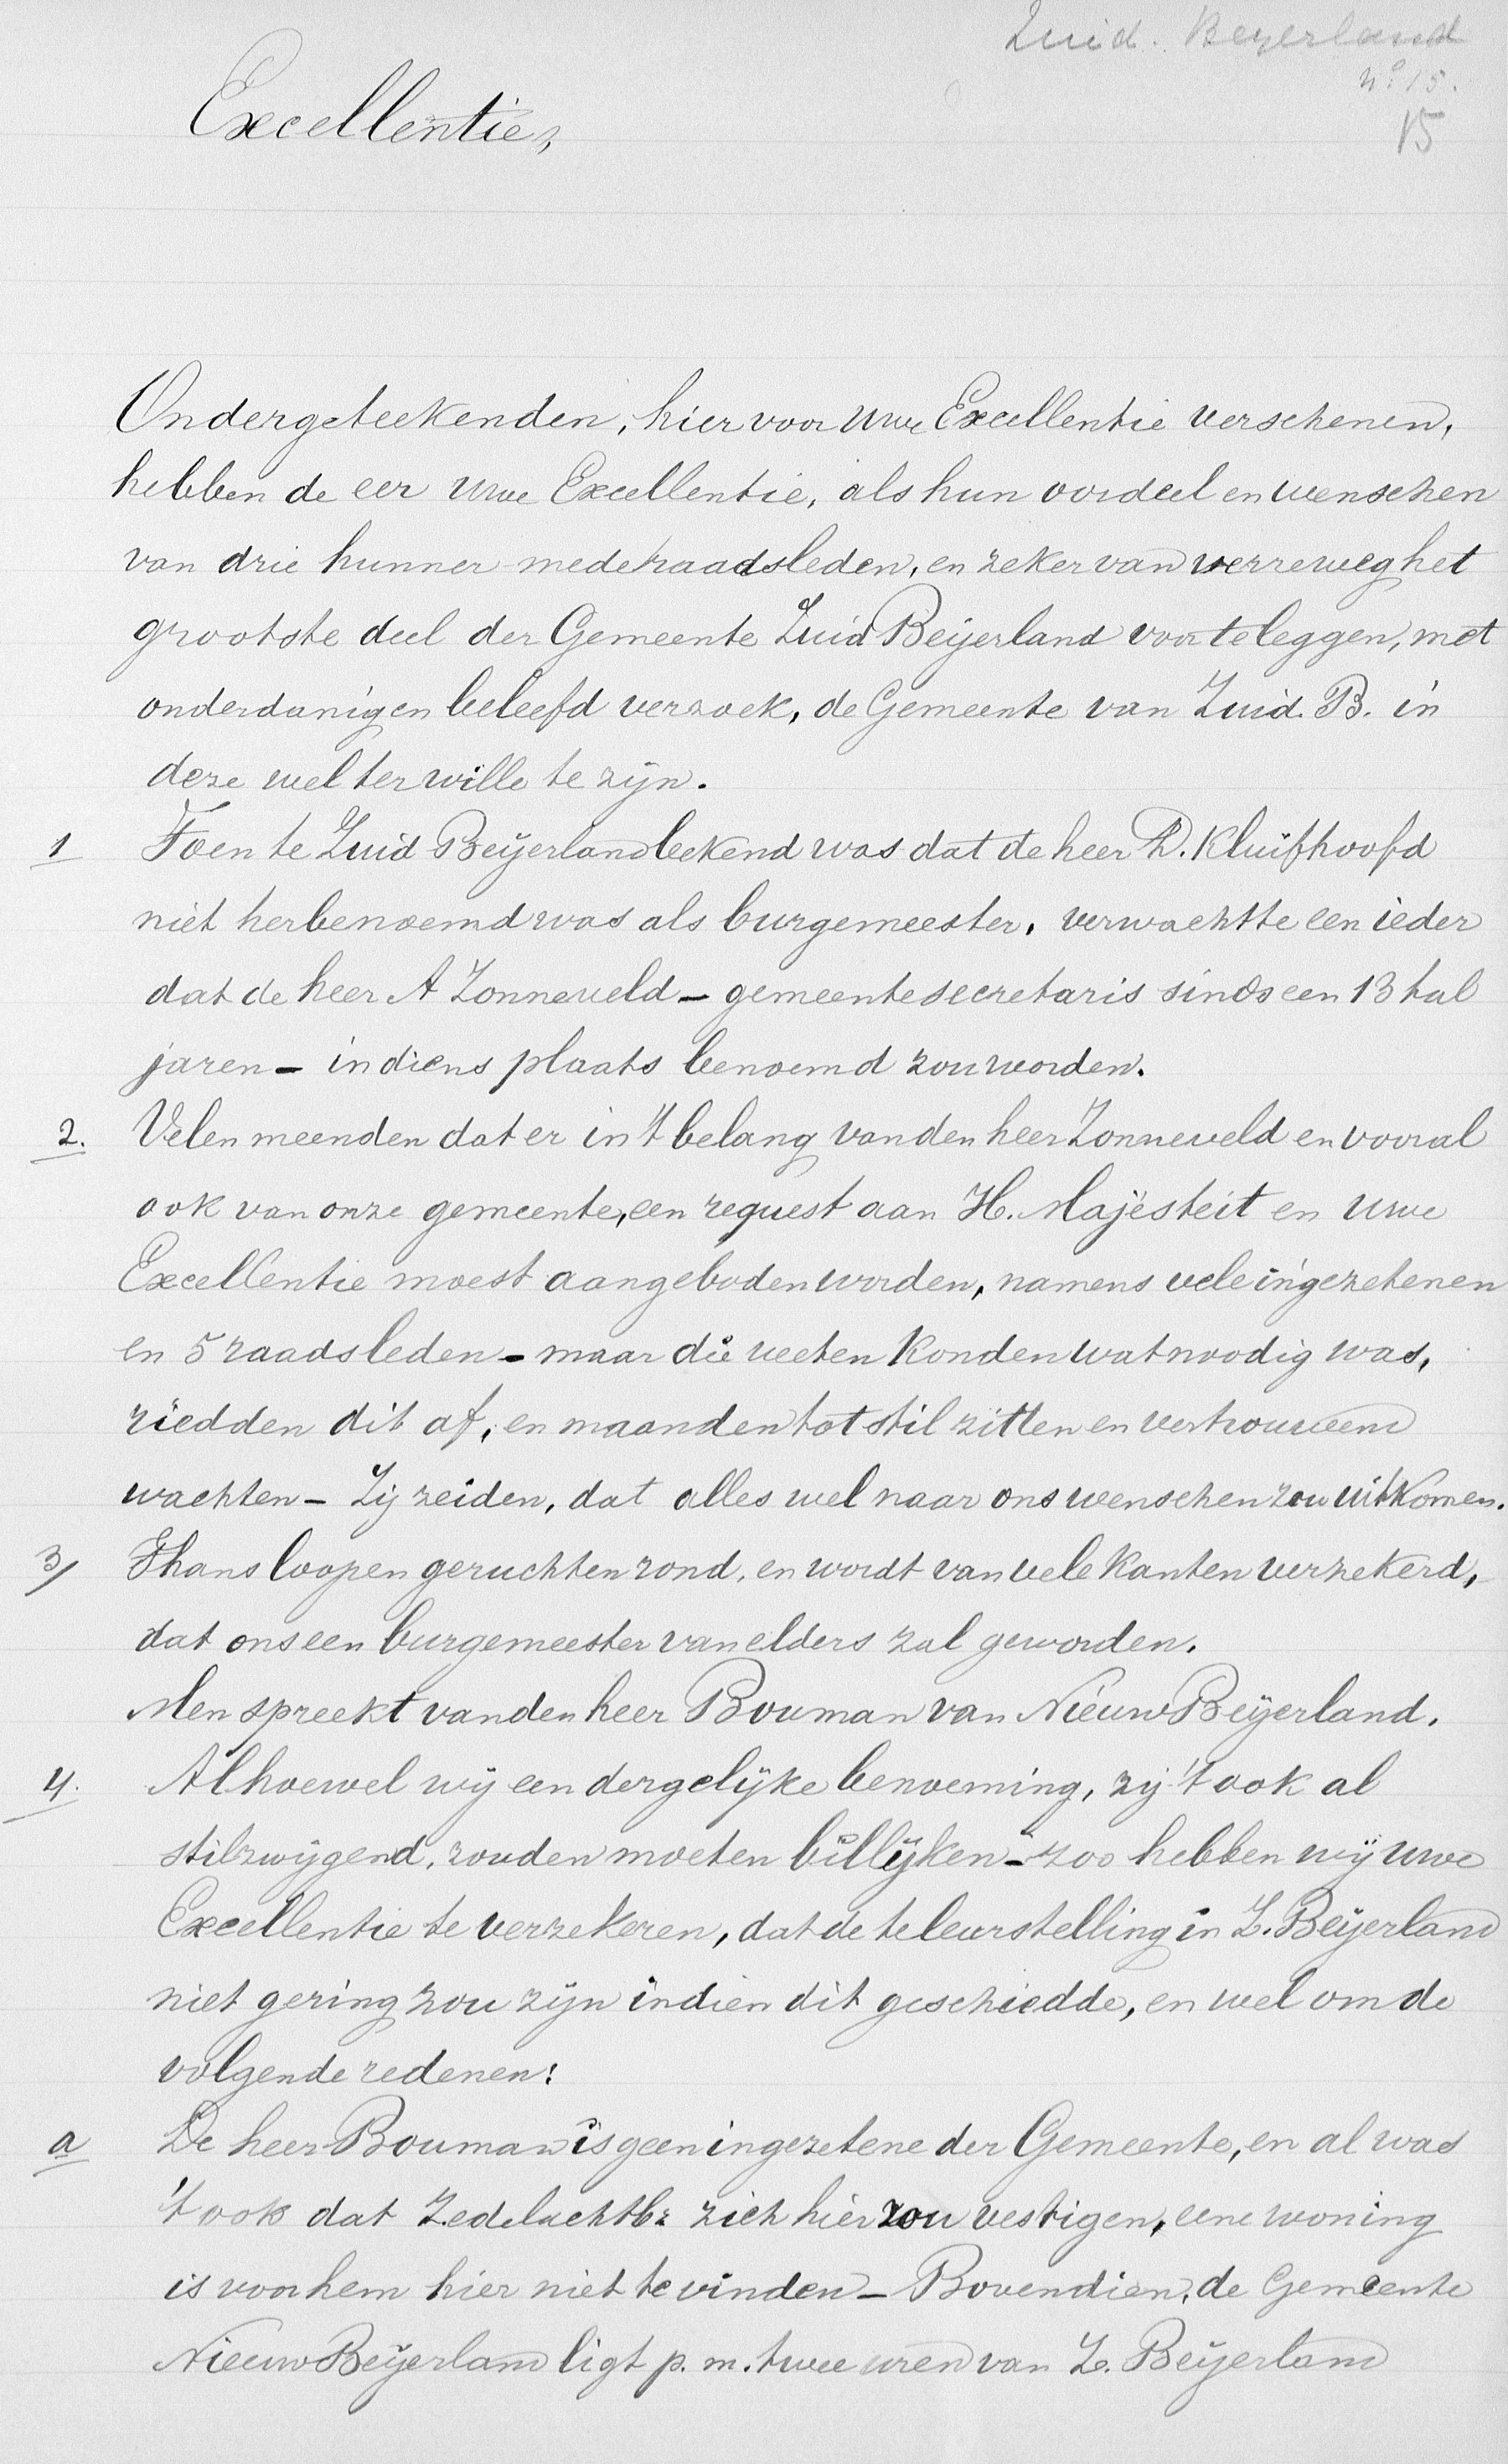 Zuid. Beyerland
no. 15.
15
Excellentie,
Ondergeteekenden, hier voor uwe Excellentie verschenen,
hebben de eer uwe Excellentie, als hun oordeel en wenschen
van drie hunner mederaadsleden, en zeker van verreweg het
grootste deel der Gemeente Zuid Beijerland voor te leggen, met
onderdanig en beleefd verzoek, de Gemeente van Zuid. B. in
deze wel ter wille te zijn.
1 Toen te Zuid Beijerland bekend was dat de heer D. Kluifhoofd
niet herbenoemd was als burgemeester, verwachtte een ieder
dat de heer A Zonneveld - gemeentesecretaris sinds een 13 tal
jaren - in diens plaats benoemd zou worden.
2. Velen meenden dat er in 't belang van den heer Zonneveld en vooral
ook van onze gemeente, een request aan H. Majesteit en uwe
Excellentie moest aangeboden worden, namens vele ingezetenen
en 5 raadsleden - maar die weten konden wat noodig was,
riedden dit af, en maanden tot stil zitten en vertrouwend
wachten - Zij zeiden, dat alles wel naar ons wenschen zou uitkomen.
3/ Thans loopen geruchten rond, en wordt van vele kanten verzekerd,
dat ons een burgemeester van elders zal geworden.
Men spreekt van den heer Bouman van Nieuw Beijerland.
4. Alhoewel wij een dergelijke benoeming, zij 't ook al
stilzwijgend, zouden moeten billijken - zoo hebben wij uwe
Excellentie te verzekeren, dat de teleurstelling in Z. Beijerland
niet gering zou zijn indien dit geschiedde, en wel om de
volgende redenen:
a De heer Bouman is geen ingezetene der Gemeente, en al was
't ook dat Z.edelachtbr zich hier zou vestigen, eene woning
is voor hem hier niet te vinden - Bovendien, de Gemeente
Nieuw Beijerland ligt p. m. twee uren van Z. Beijerland